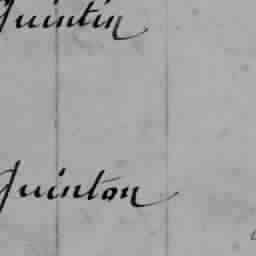 Quintin
Quinton